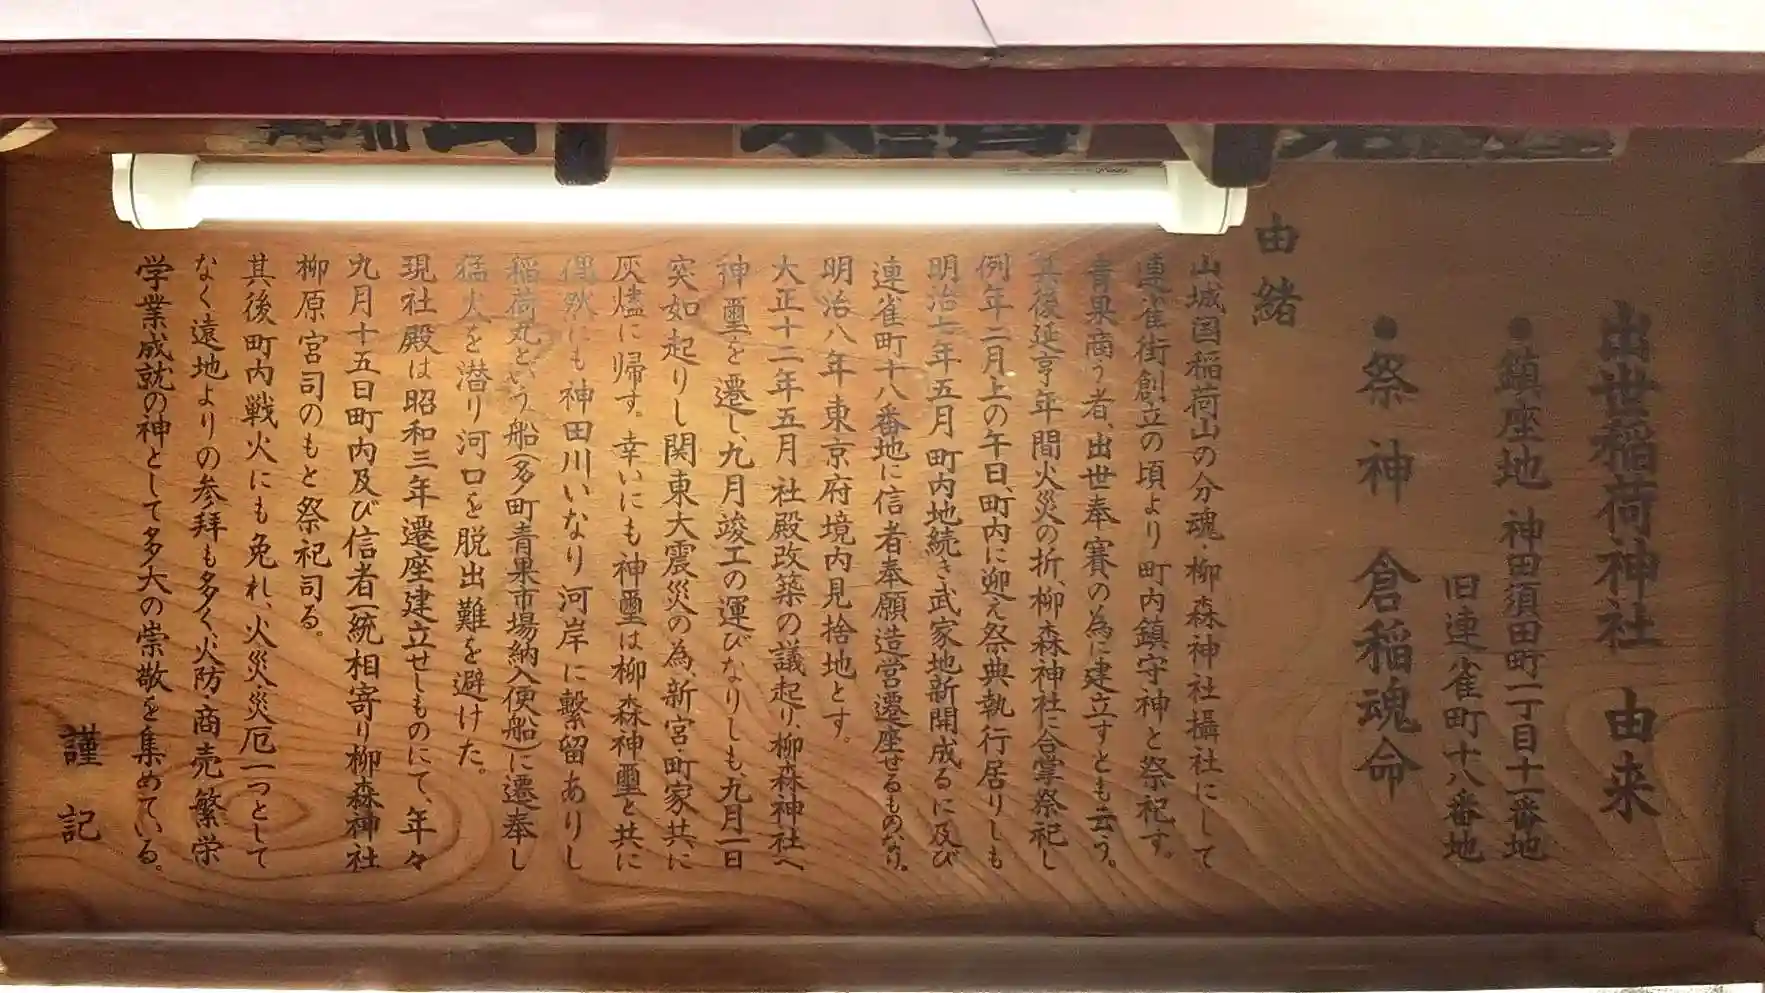 出世稲荷神社 由来
●鎮座地 神田須田町一丁目十一番地
旧連雀町十八番地
●祭神 倉稲魂命
由緒
山城国稲荷山の分魂・柳森神社攝社にして
連雀街創立の頃より町内鎮守神と祭祀す。
青果商う者、出世奉賽の為に建立すとも云う。
其後延亨年間火災の折、柳森神社に合掌祭祀し
例年二月上の午日、町内に迎え祭典執行居りしも
明治七年五月町内地続き武家地新開成るに及び
連雀町十八番地に信者奉願造営遷座せるものなり。
明治八年東京府境内見捨地とす。
大正十二年五月社殿改築の議起り、柳森神社へ
神璽を遷し、九月竣工の運びなりしも、九月一日
突如起りし関東大震災の為、新宮・町家共に
灰燼に帰す。幸いにも神璽は柳森神璽と共に
偶然にも神田川いなり河岸に繋留ありし
稲荷丸という船(多町青果市場納入便船)に遷奉し
猛火を潜り河口を脱出難を避けた。
現社殿は昭和三年遷座建立せしものにて、年々
九月十五日町内及び信者一統相寄り柳森神社
柳原宮司のもと祭祀司る。
其後町内戦火にも免れ、火災災厄一つとして
なく遠地よりの参拝も多く、火防商売繁栄
学業成就の神として多大の崇敬を集めている。
謹記